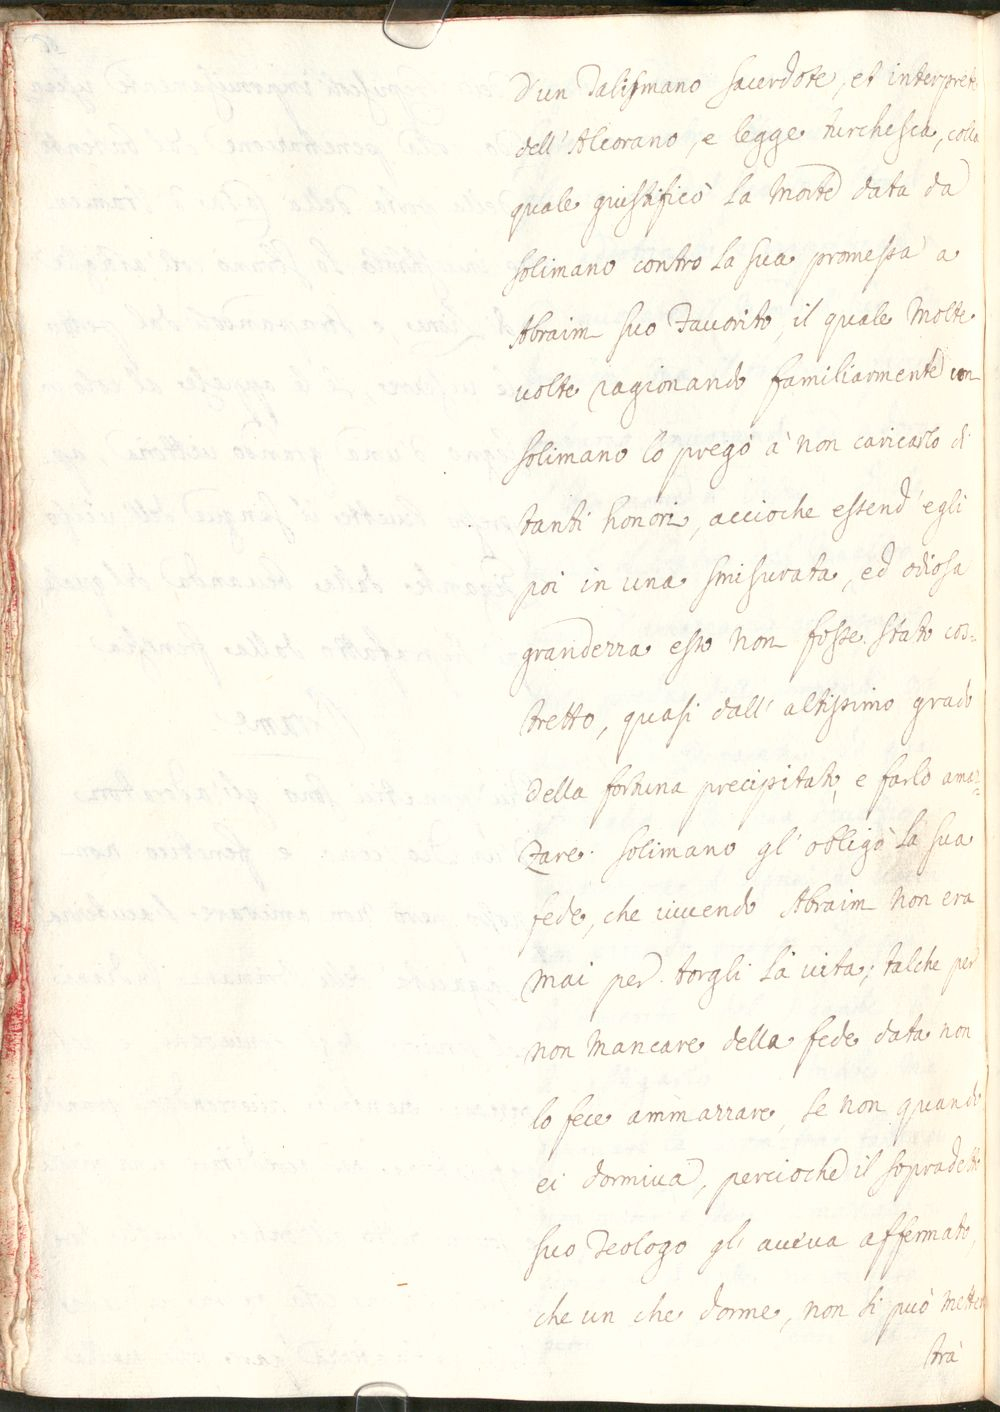 D'un Talismano sacerdote, et interprete
dell'Alcorano, e legge turchesca, colla
quale giustificò la morte data da
solimano contro la sua promessa a
Abraim suo Favorito, il quale molte
volte ragionando familiarmente con
solimano lo pregò à non caricarlo di
tanti honori, accioche essend'egli
poi in una smisurata, ed odiosa
grandezza esso non fosse stato cos=
tretto, quasi dall'altissimo grado
della fortuna precipitato, e farlo amaz=
zare. solimano gl'obligò la sua
fede, che vivendo Abraim non era
mai per torgli la vita; talche per
non mancare della fede data non
lo fece ammazzare, se non quando
ei dormiva, percioche il sopradetto
suo Teologo gli aveva affermato,
che un che dorme, non si può metter
trà